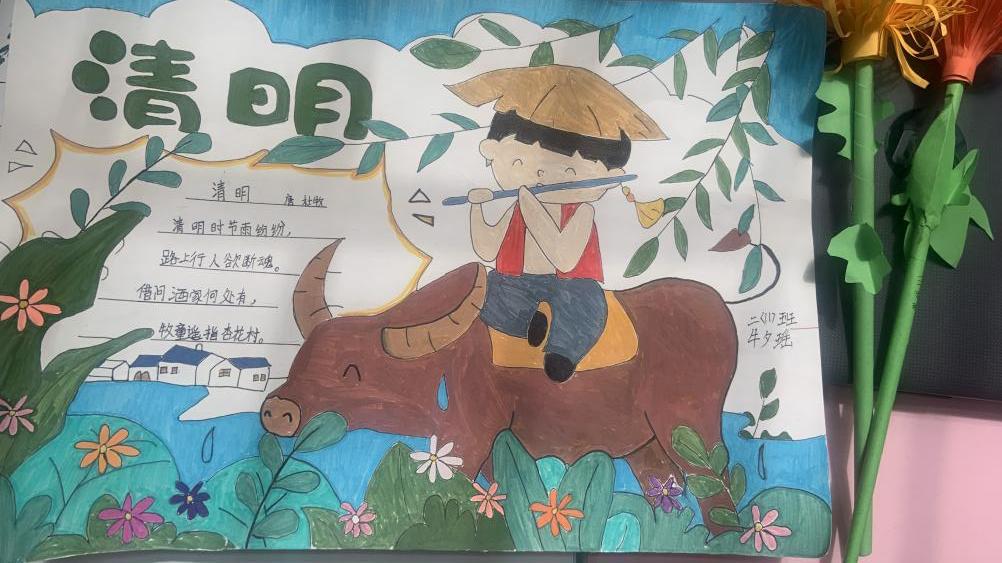 清明
清明 唐 杜牧
清明时节雨纷纷，
路上行人欲断魂。
借问酒家何处有，
牧童遥指杏花村。
二（1）班
牟夕瑶